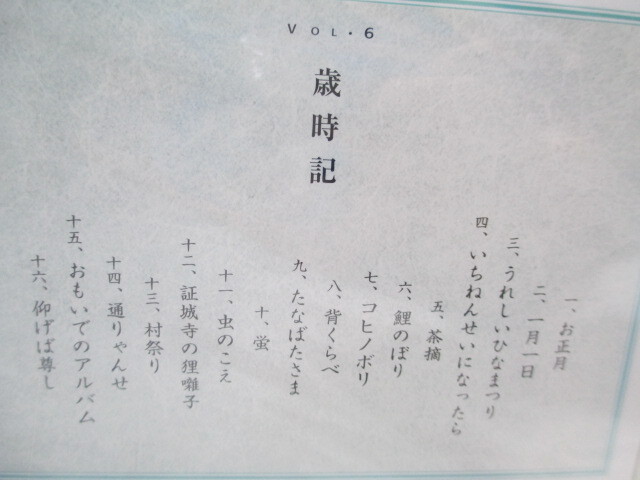 VOL・6
歳時記
一、お正月
二、一月一日
三、うれしいひなまつり
四、いちねんせいになったら
五、茶摘
六、鯉のぼり
七、コヒノボリ
八、背くらべ
九、たなばたさま
十、蛍
十一、虫のこえ
十二、証城寺の狸囃子
十三、村祭り
十四、通りゃんせ
十五、おもいでのアルバム
十六、仰げば尊し